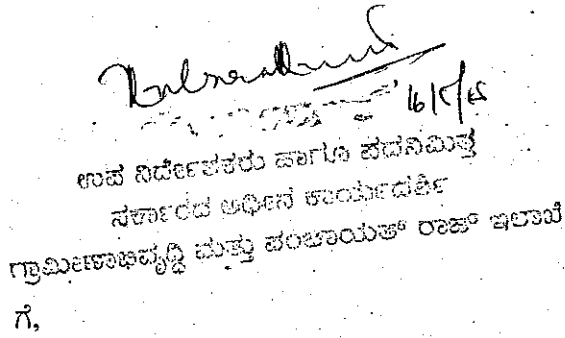 16/5/15
ಉಪ ನಿರ್ದೇಶಕರು ಹಾಗೂ ಪದನಿಮಿತ್ತ
ಸರ್ಕಾರದ ಅಧೀನ ಕಾರ್ಯದರ್ಶಿ
ಗ್ರಾಮೀಣಾಭಿವೃದ್ಧಿ ಮತ್ತು ಪಂಚಾಯತ್ ರಾಜ್ ಇಲಾಖೆ
ಗೆ,